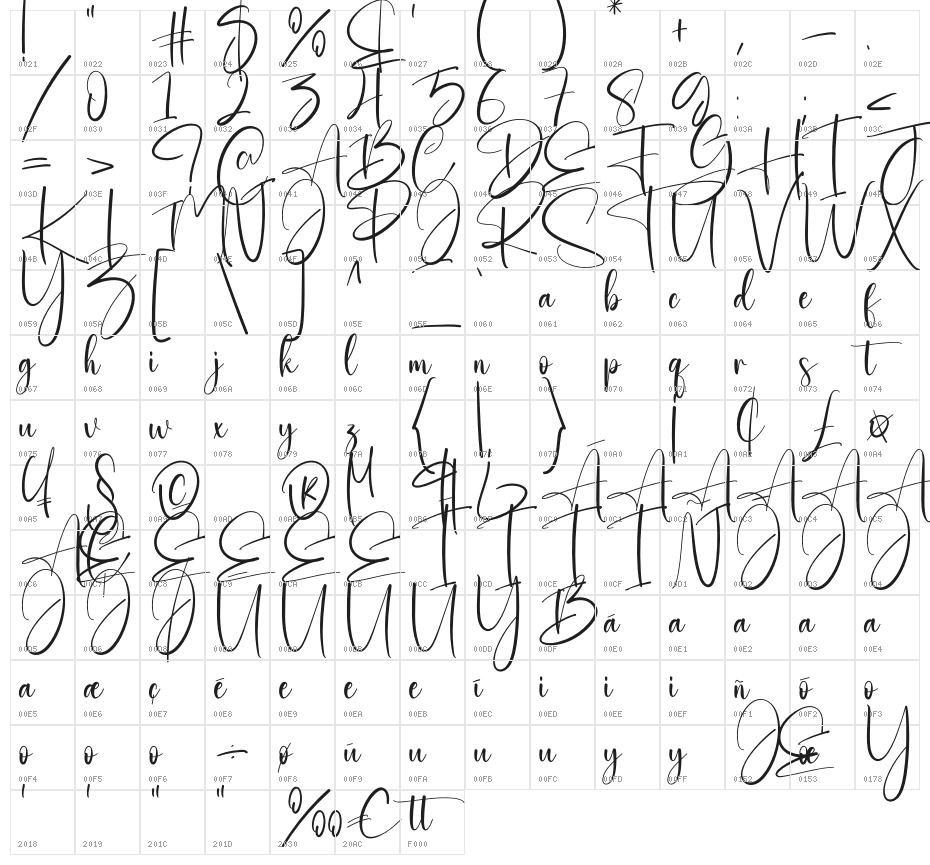 ! " # $ % & ' ( ) * + , - .
0021 0022 0023 0024 0025 0026 0027 0028 0029 002A 002B 002C 002D 002E
/ 0 1 2 3 4 5 6 7 8 9 : ; <
002F 0030 0031 0032 0033 0034 0035 0036 0037 0038 0039 003A 003B 003C
= > ? @ A B C D E F G H I J
003D 003E 003F 0040 0041 0042 0043 0044 0045 0046 0047 0048 0049 004A
K L M N O P Q R S T U V W X
004B 004C 004D 004E 004F 0050 0051 0052 0053 0054 0055 0056 0057 0058
Y Z [ \ ] ^ _ ` a b c d e f
0059 005A 005B 005C 005D 005E 005F 0060 0061 0062 0063 0064 0065 0066
g h i j k l m n o p q r s t
0067 0068 0069 006A 006B 006C 006D 006E 006F 0070 0071 0072 0073 0074
u v w x y z { | } ¡ ¢ £ ¤
0075 0076 0077 0078 0079 007A 007B 007C 007D 00A0 00A1 00A2 00A3 00A4
¥ § © ® µ ¶ ¿ À Á Â Ã Ä Å
00A5 00A7 00A9 00AD 00AE 00B5 00B6 00BF 00C0 00C1 00C2 00C3 00C4 00C5
Æ Ç È É Ê Ë Ì Í Î Ï Ñ Ò Ó Ô
00C6 00C7 00C8 00C9 00CA 00CB 00CC 00CD 00CE 00CF 00D1 00D2 00D3 00D4
Õ Ö Ø Ù Ú Û Ü Ý ß à á â ã ä
00D5 00D6 00D8 00D9 00DA 00DB 00DC 00DD 00DF 00E0 00E1 00E2 00E3 00E4
å æ ç è é ê ë ì í î ï ñ ò ó
00E5 00E6 00E7 00E8 00E9 00EA 00EB 00EC 00ED 00EE 00EF 00F1 00F2 00F3
ô õ ö ÷ ø ù ú û ü ý ÿ Œ œ Ÿ
00F4 00F5 00F6 00F7 00F8 00F9 00FA 00FB 00FC 00FD 00FF 0152 0153 0178
‘ ’ “ ” ‰ € tt
2018 2019 201C 201D 2030 20AC F000